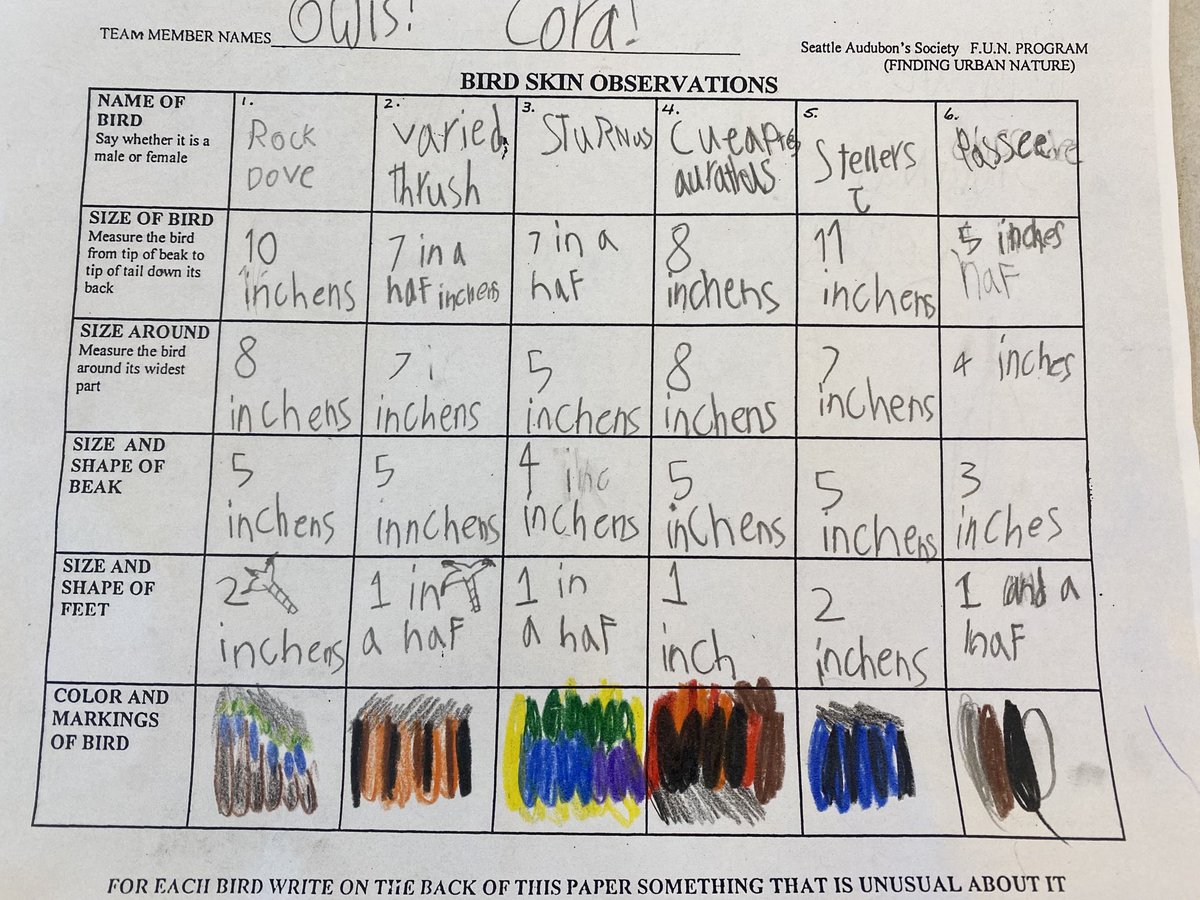 TEAM MEMBER NAMES Owls! Cora!
Seattle Audubon's Society F.U.N. PROGRAM
(FINDING URBAN NATURE)
BIRD SKIN OBSERVATIONS
NAME OF
BIRD
Say whether it is a
male or female
1.
Rock
Dove
2.
varied
thrush
3.
STURNUS
4.
5.
Stellers
6.
SIZE OF BIRD
Measure the bird
from tip of beak to
tip of tail down its
back
10
inchens
7 in a
haf inchens
7 in a
haf
8
inchens
11
inchens
5 inches
haf
SIZE AROUND
Measure the bird
around its widest
part
8
inchens
7 i
inchens
5
inchens
8
inchens
7
inchens
4 inches
SIZE AND
SHAPE OF
BEAK
5
inchens
5
innchens
4 inc
inchens
5
inchens
5
inchens
3
inches
SIZE AND
SHAPE OF
FEET
2
inchens
1 in
a haf
1 in
a haf
1
inch
2
inchens
1 and a
haf
COLOR AND
MARKINGS
OF BIRD
FOR EACH BIRD WRITE ON THE BACK OF THIS PAPER SOMETHING THAT IS UNUSUAL ABOUT IT